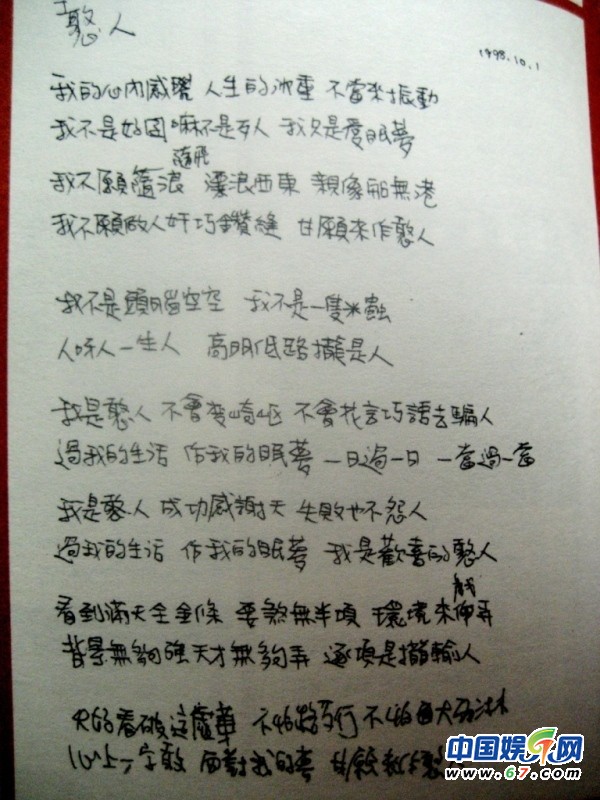 憨人
1998.10.1
我的心內感覺 人生的沈重 不當來振動
我不是好囝 嘛不是歹人 我只是愛眠夢
隨飛
我不願隨浪 漂浪西東 親像船無港
我不願做人奸巧鑽縫 甘願來作憨人
我不是頭腦空空 我不是一隻米蟲
人呀人一生人 高明低路攏是人
我是憨人 不會變崎嶇 不會花言巧語去騙人
過我的生活 作我的眠夢 一日過一日 一當過一當
我是憨人 成功感謝天 失敗也不怨人
過我的生活 作我的眠夢 我是歡喜的憨人
我
看到滿天全金條 要煞無半項 環境來戲弄
背景無夠強天才無夠弄 逐項是攏輸人
只好看破這虛華 不怕路歹行 不怕自大
心上一字敢 面對我的夢 甘願
中国娱乐网
www.67.com